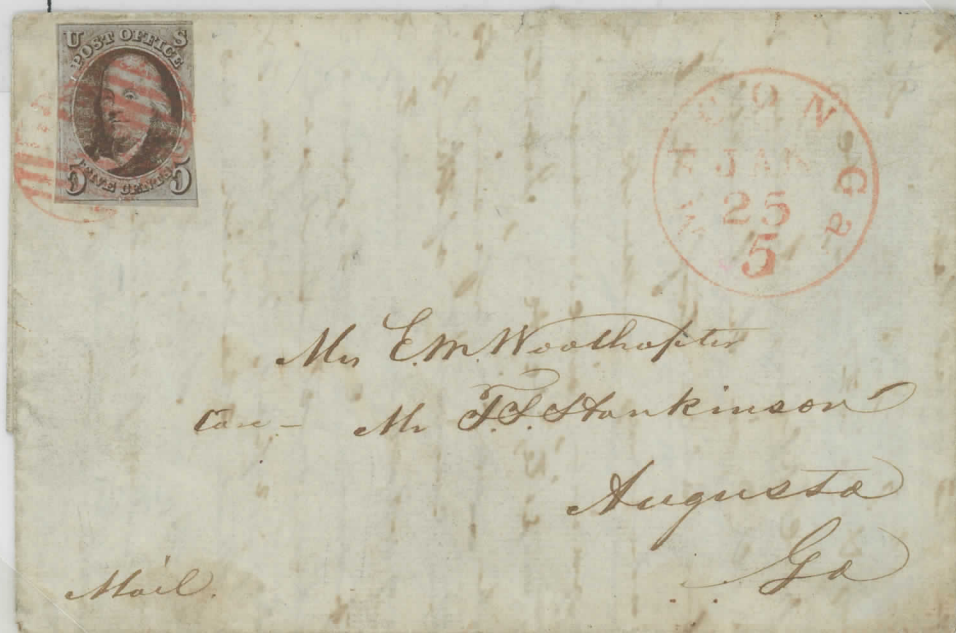 U S
POST OFFICE
5 FIVE CENTS 5
MACON Ga
JAN
25
5
Mrs E. M. Woolhopter
Care - Mr T. S. Hankinson
Augusta
Ga
Mail.